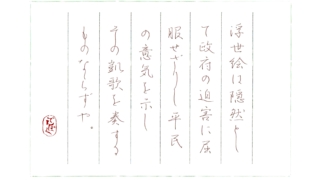 浮世絵は隠然として
て政府の迫害に屈
服せざりし平民
の意気を示し
その凱歌を奏する
ものならずや。